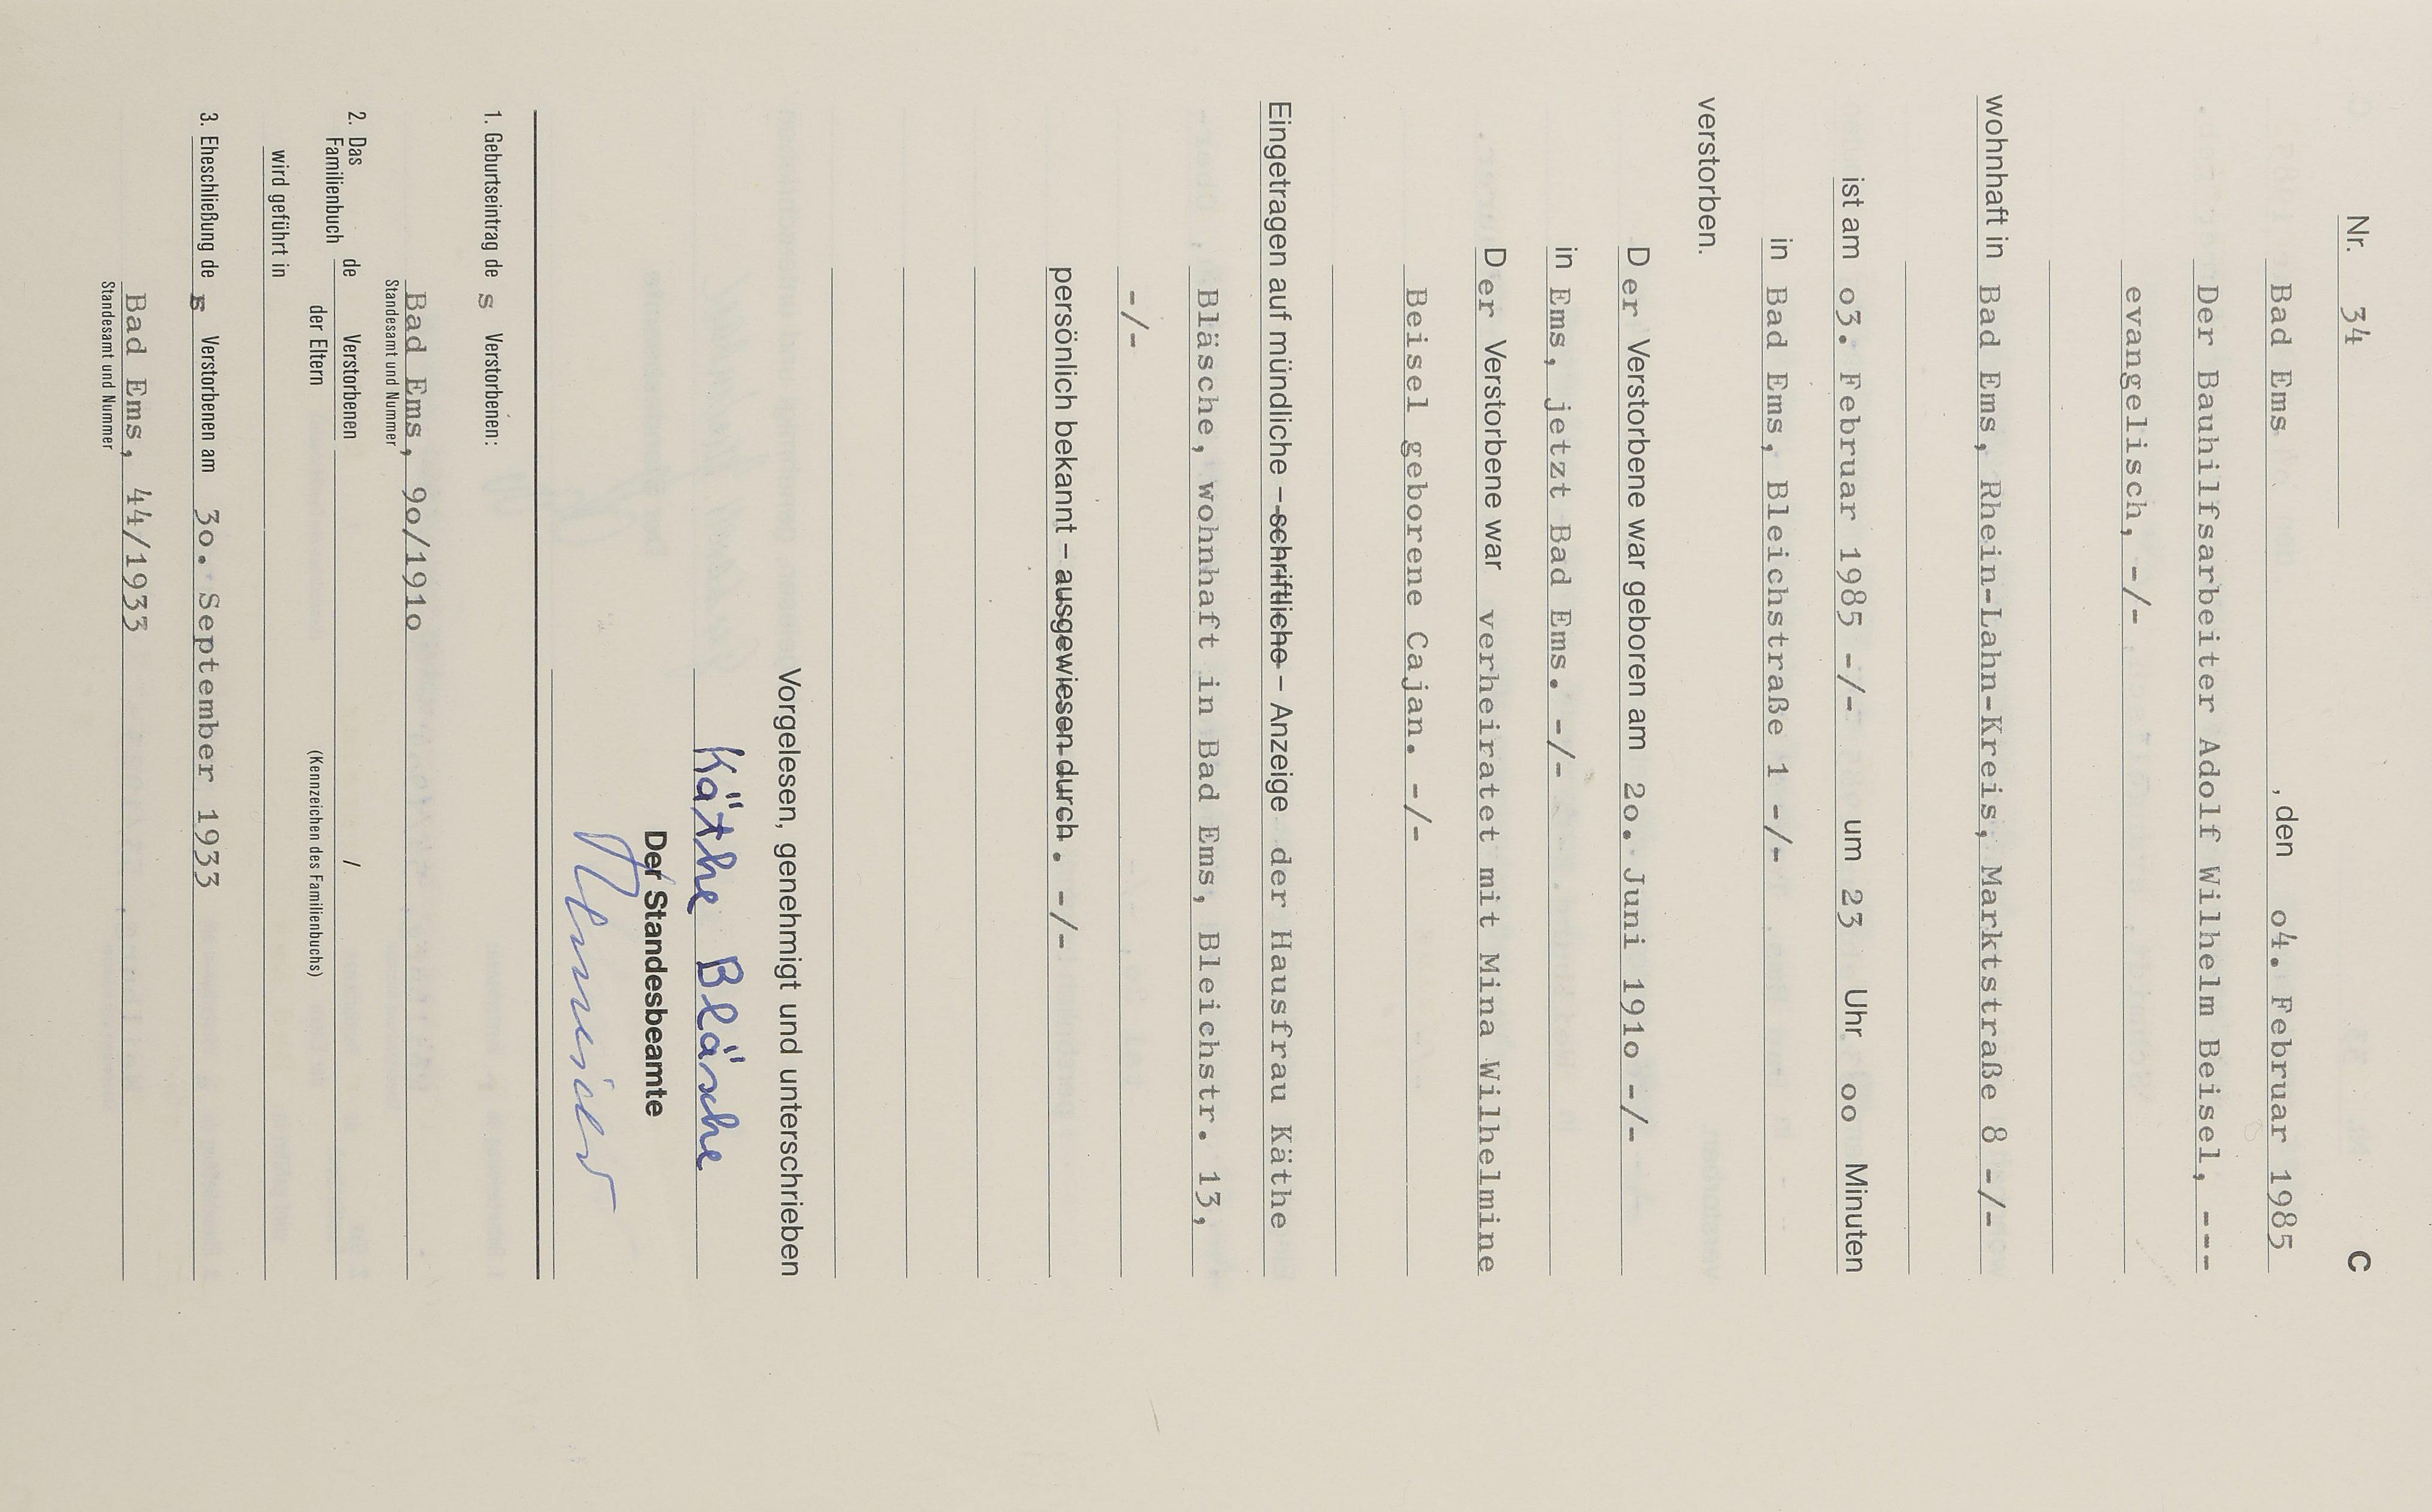 Nr. 34 C
Bad Ems , den o4. Februar 1985
Der Bauhilfsarbeiter Adolf Wilhelm Beisel, ---
evangelisch, -/-
wohnhaft in Bad Ems, Rhein-Lahn-Kreis, Marktstraße 8 -/-
ist am o3. Februar 1985 -/- um 23 Uhr oo Minuten
in Bad Ems, Bleichstraße 1 -/-
verstorben.
Der Verstorbene war geboren am 2o. Juni 191o -/-
in Ems, jetzt Bad Ems. -/-
Der Verstorbene war verheiratet mit Mina Wilhelmine
Beisel geborene Cajan. -/-
Eingetragen auf mündliche – schriftliche – Anzeige der Hausfrau Käthe
Bläsche, wohnhaft in Bad Ems, Bleichstr. 13,
-/-
persönlich bekannt – ausgewiesen durch . -/-
Vorgelesen, genehmigt und unterschrieben
Käthe Bläsche
Der Standesbeamte
1. Geburtseintrag de s Verstorbenen:
Bad Ems, 9o/191o
Standesamt und Nummer
2. Das Familienbuch de Verstorbenen der Eltern /
(Kennzeichen des Familienbuchs)
wird geführt in
3. Eheschließung de s Verstorbenen am 3o. September 1933
Bad Ems, 44/1933
Standesamt und Nummer